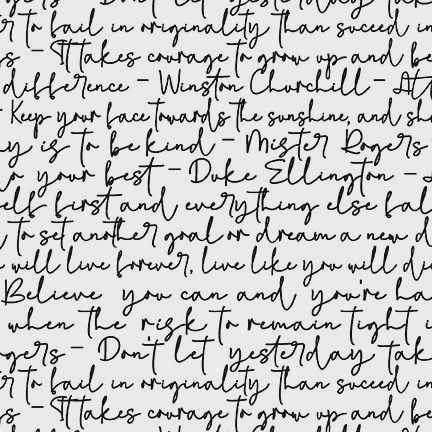 Don't let yesterday
r to fail in originality than suceed in
s - It takes courage to grow up and be
difference - Winston Churchill - At
Keep your face towards the sunshine, and sh
y is to be kind - Mister Rogers
o your best - Duke Ellington -
elf first and everything else fal
to set another goal or dream a new d
will live forever, live like you will di
Believe you can and you're ha
when the risk to remain tight i
gers - Don't let yesterday tak
r to fail in originality than suceed in
s - It takes courage to grow up and be
difference - Winston Churchill